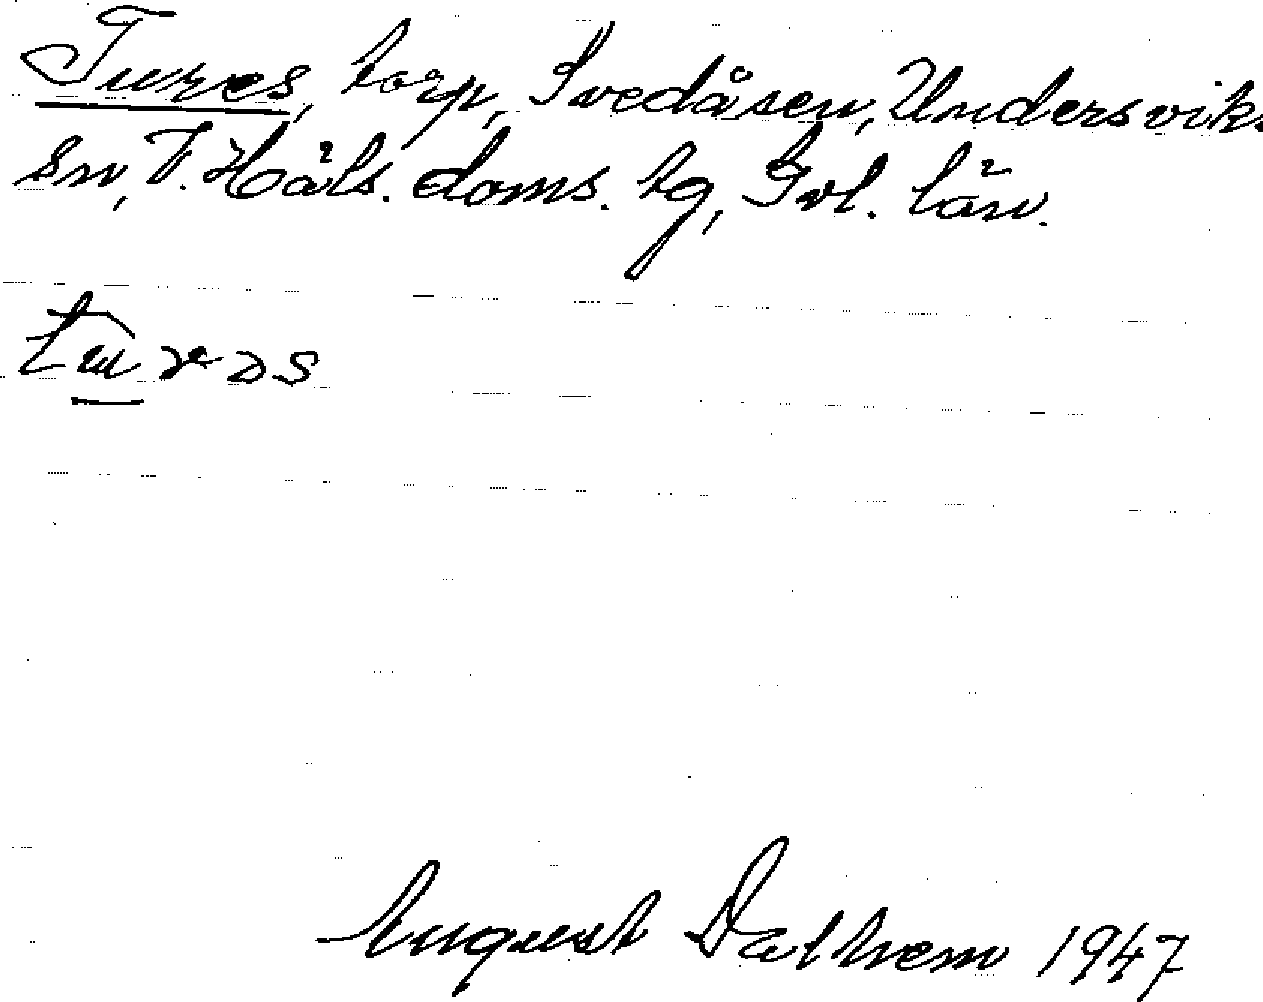 Tures, torp, Svedåsen, Undersviks
sn, V. Häls. doms. tg, Gvl. län.
August Dalhem 1947